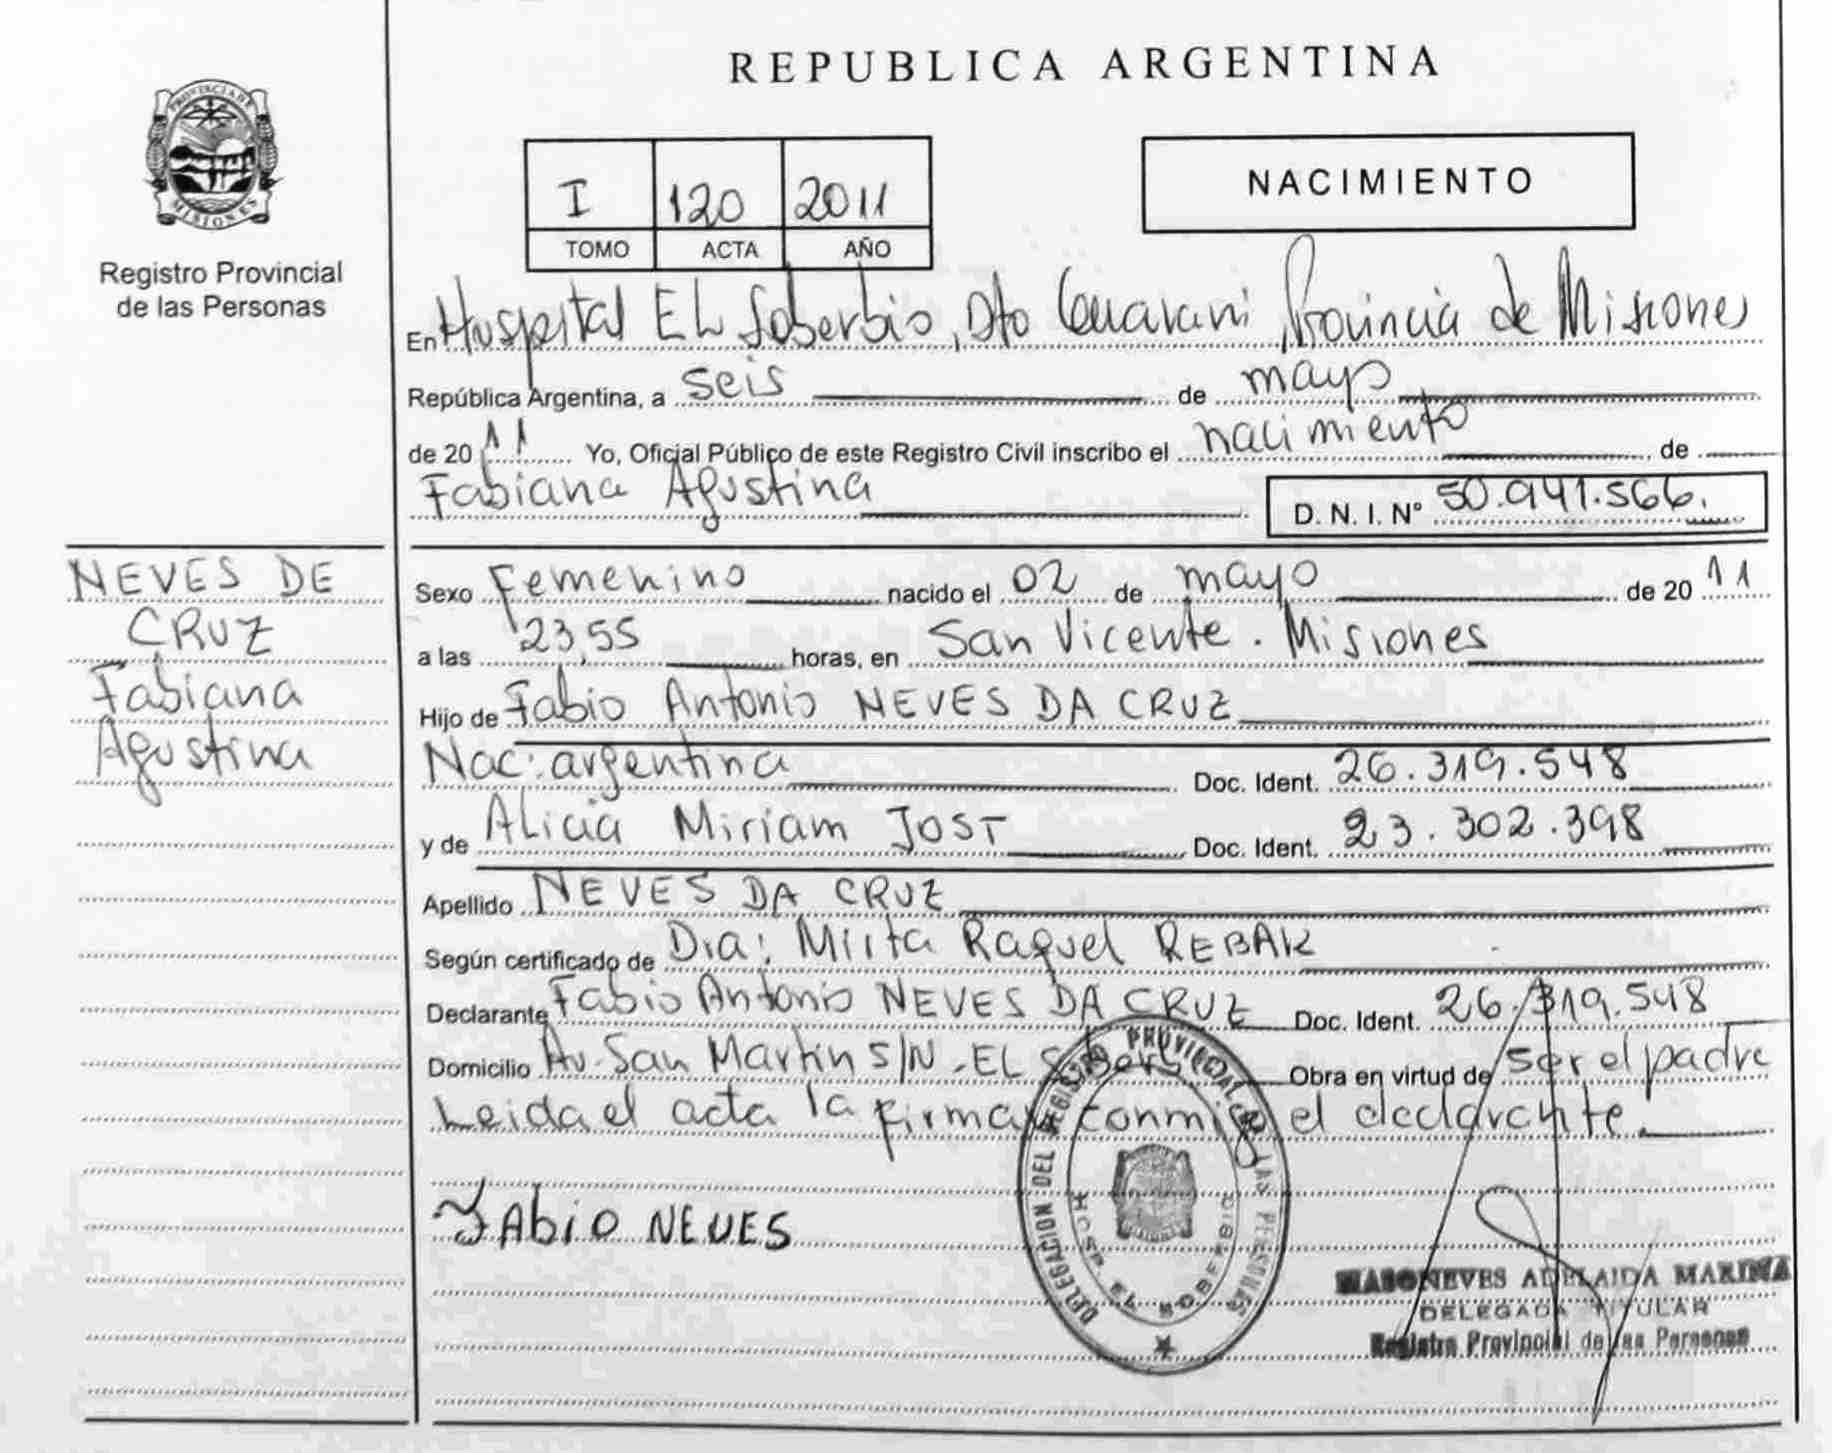 PROVINCIA DE
MISIONES
Registro Provincial
de las Personas
REPUBLICA ARGENTINA
I 120 2011
TOMO ACTA AÑO
NACIMIENTO
En Hospital EL Soberbio, Dto Guarani, Provincia de Misiones
República Argentina, a seis de mayo
de 20 11 Yo, Oficial Público de este Registro Civil inscribo el nacimiento de
Fabiana Agustina D. N. I. N° 50.941.566.
NEVES DE
CRUZ
Fabiana
Agustina
Sexo Femenino nacido el 02 de mayo de 20 11
a las 23,55 horas, en San Vicente. Misiones
Hijo de Fabio Antonio NEVES DA CRUZ
Nac: argentina Doc. Ident. 26.319.548
y de Alicia Miriam JOST Doc. Ident. 23.302.398
Apellido NEVES DA CRUZ
Según certificado de Dra: Mirta Raquel REBAK
Declarante Fabio Antonio NEVES DA CRUZ Doc. Ident. 26.319.548
Domicilio Av. San Martin S/N - EL Sober Obra en virtud de ser el padre
Leida el acta la firma conmigo el declarante.
FAbiO NEVES
DELEGACION DEL REGISTRO PROVINCIAL DE LAS PERSONAS
HOSP. EL SOBERBIO
MASONEVES ADELAIDA MARINA
DELEGADA TITULAR
Registro Provincial de las Personas